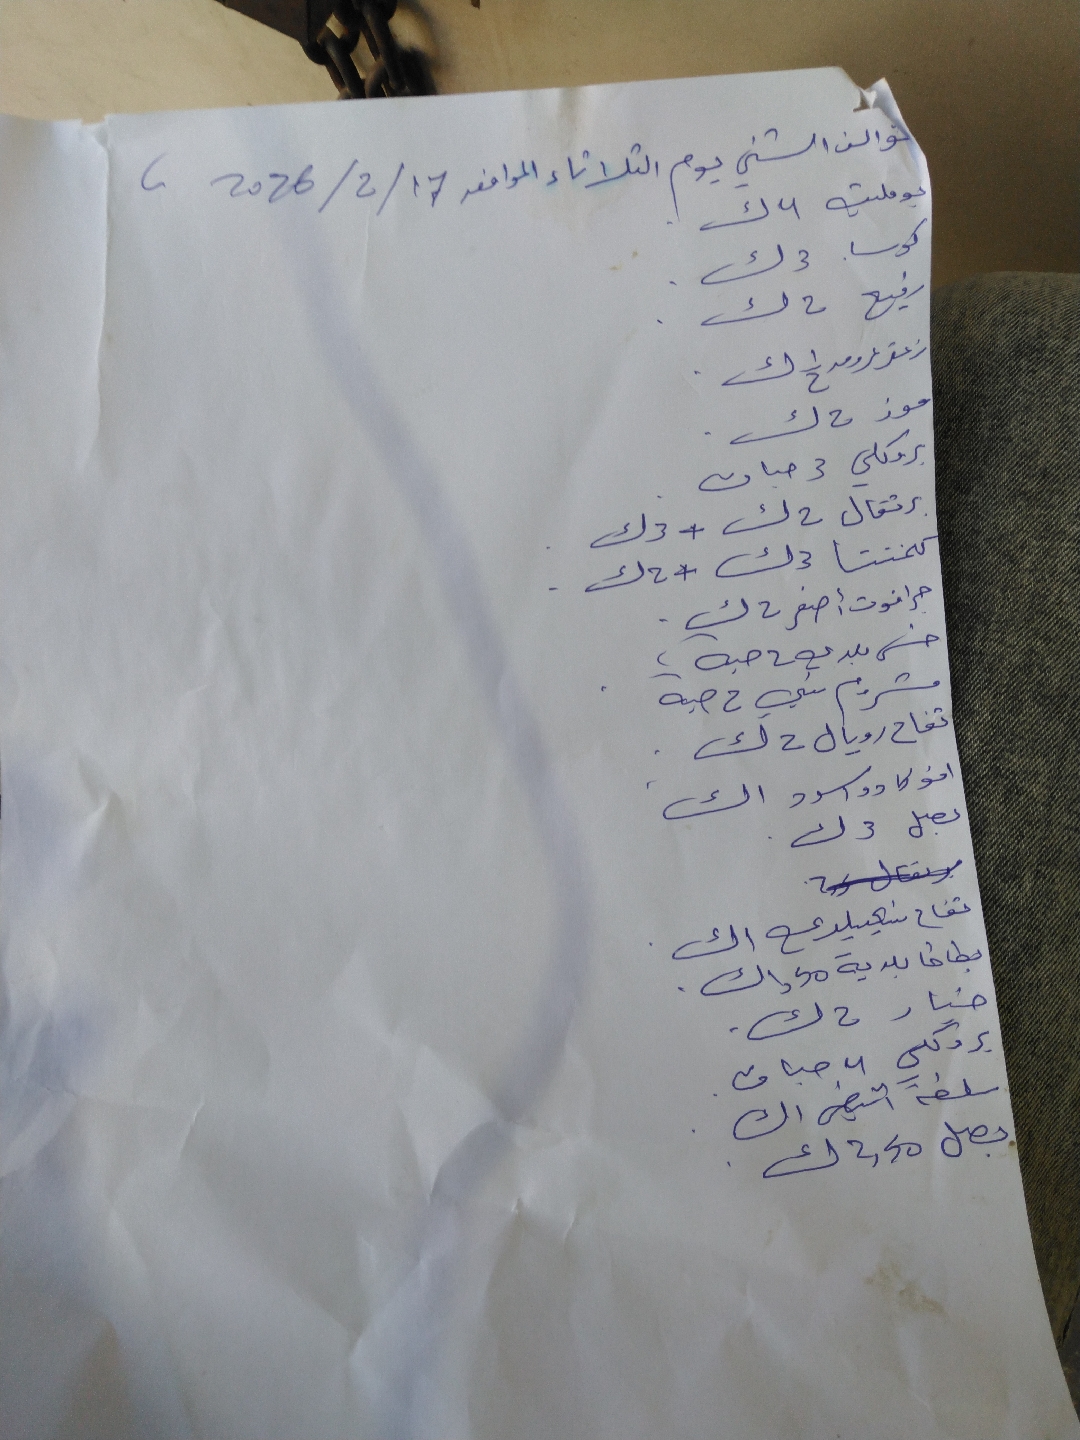 توالف الشني يوم الثلاثاء الموافق 2026/2/17
بومليت 4 ك.
كوسا. 3 ك.
رفيع 2 ك.
زعتر بروم 1/2 ك.
موز 2 ك.
بروكلي 3 حبات.
برتقال 2 ك + 3 ك.
كلمنتتا 3 ك + 2 ك.
جرافوت أصفر 2 ك.
خس بلدي 2 حبة
مشروم بني 2 حبة.
تفاح رويال 2 ك.
افوكادو اسود 1 ك.
بصل 3 ك.
برتقال 2
تفاح 1 ك.
بطاطا بلدية 1,50 ك.
خيار 2 ك.
بروكلي 4 حبات.
سلطة 1 ك.
بصل 2,50 ك.